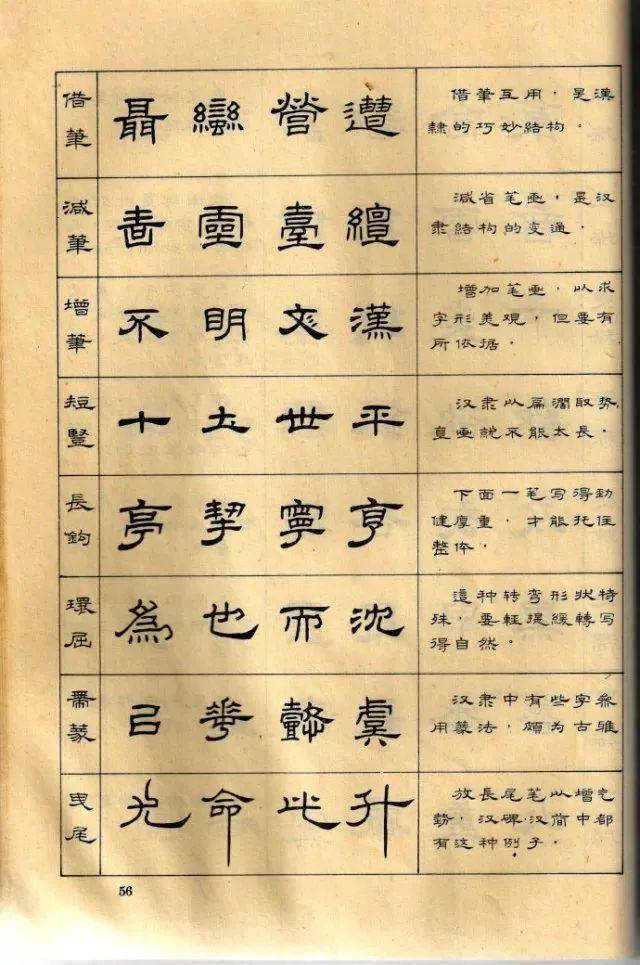 借筆
聶 蠻 營 遭
借筆互用，是漢
隸的巧妙結构。
減筆
臺 繵
減省笔画，是汉
隶結构的变通。
增筆
不 明 漢
增加笔画，以求
字形美观，但要有
所依据。
短豎
十 土 世 平
汉隶以扁濶取势，
直画就不能太長。
長鉤
亭 挈 寧 亨
下面一笔写得劲
健厚重，才能托住
整体。
環屈
為 也 而 沈
這种转弯形状特
殊，要輕提緩轉写
得自然。
帶篆
己 華 懿 虞
汉隶中有些字參
用篆法，頗为古雅
曳尾
光 命 此 升
放長尾笔以增气
势，汉碑汉简中都
有这种例子。
56